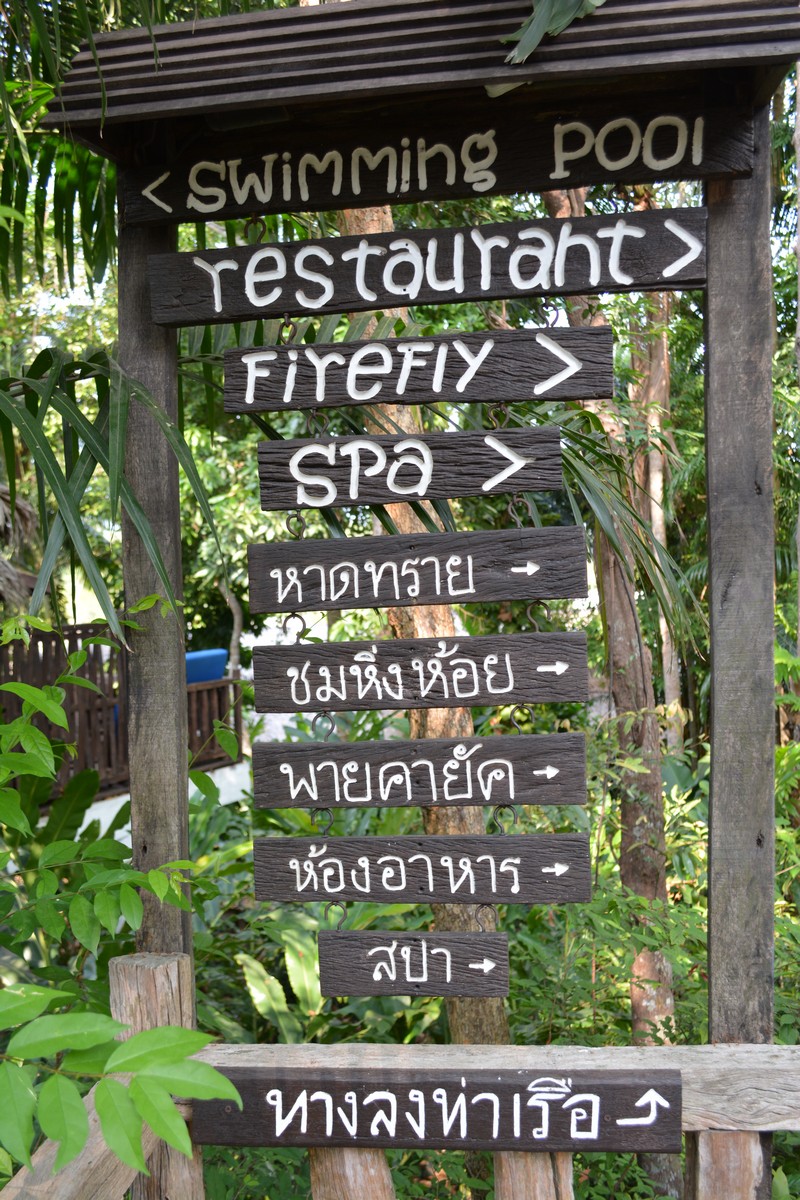 < Swimming Pool
restaurant >
Firefly >
Spa >
หาดทราย →
ชมหิ่งห้อย →
พายคายัค →
ห้องอาหาร →
สปา →
ทางลงท่าเรือ ⤴